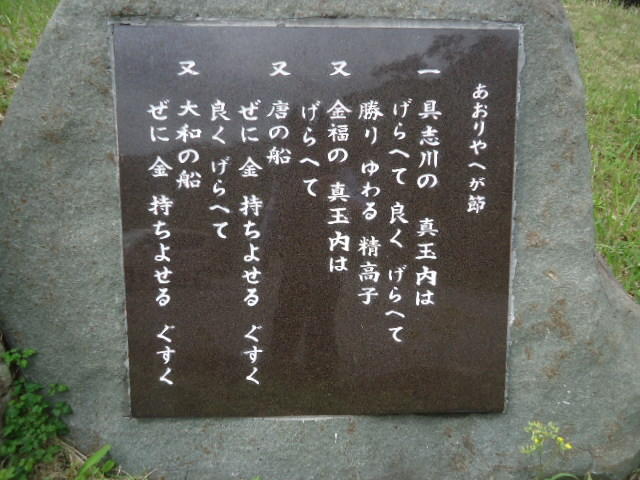 あおりやへが節
一 具志川の 真玉内は
げらへて 良く げらへて
勝り ゆわる 精高子
又 金福の 真玉内は
げらへて
又 唐の船
ぜに 金 持ちよせる ぐすく
良く げらへて
又 大和の船
ぜに 金 持ちよせる ぐすく